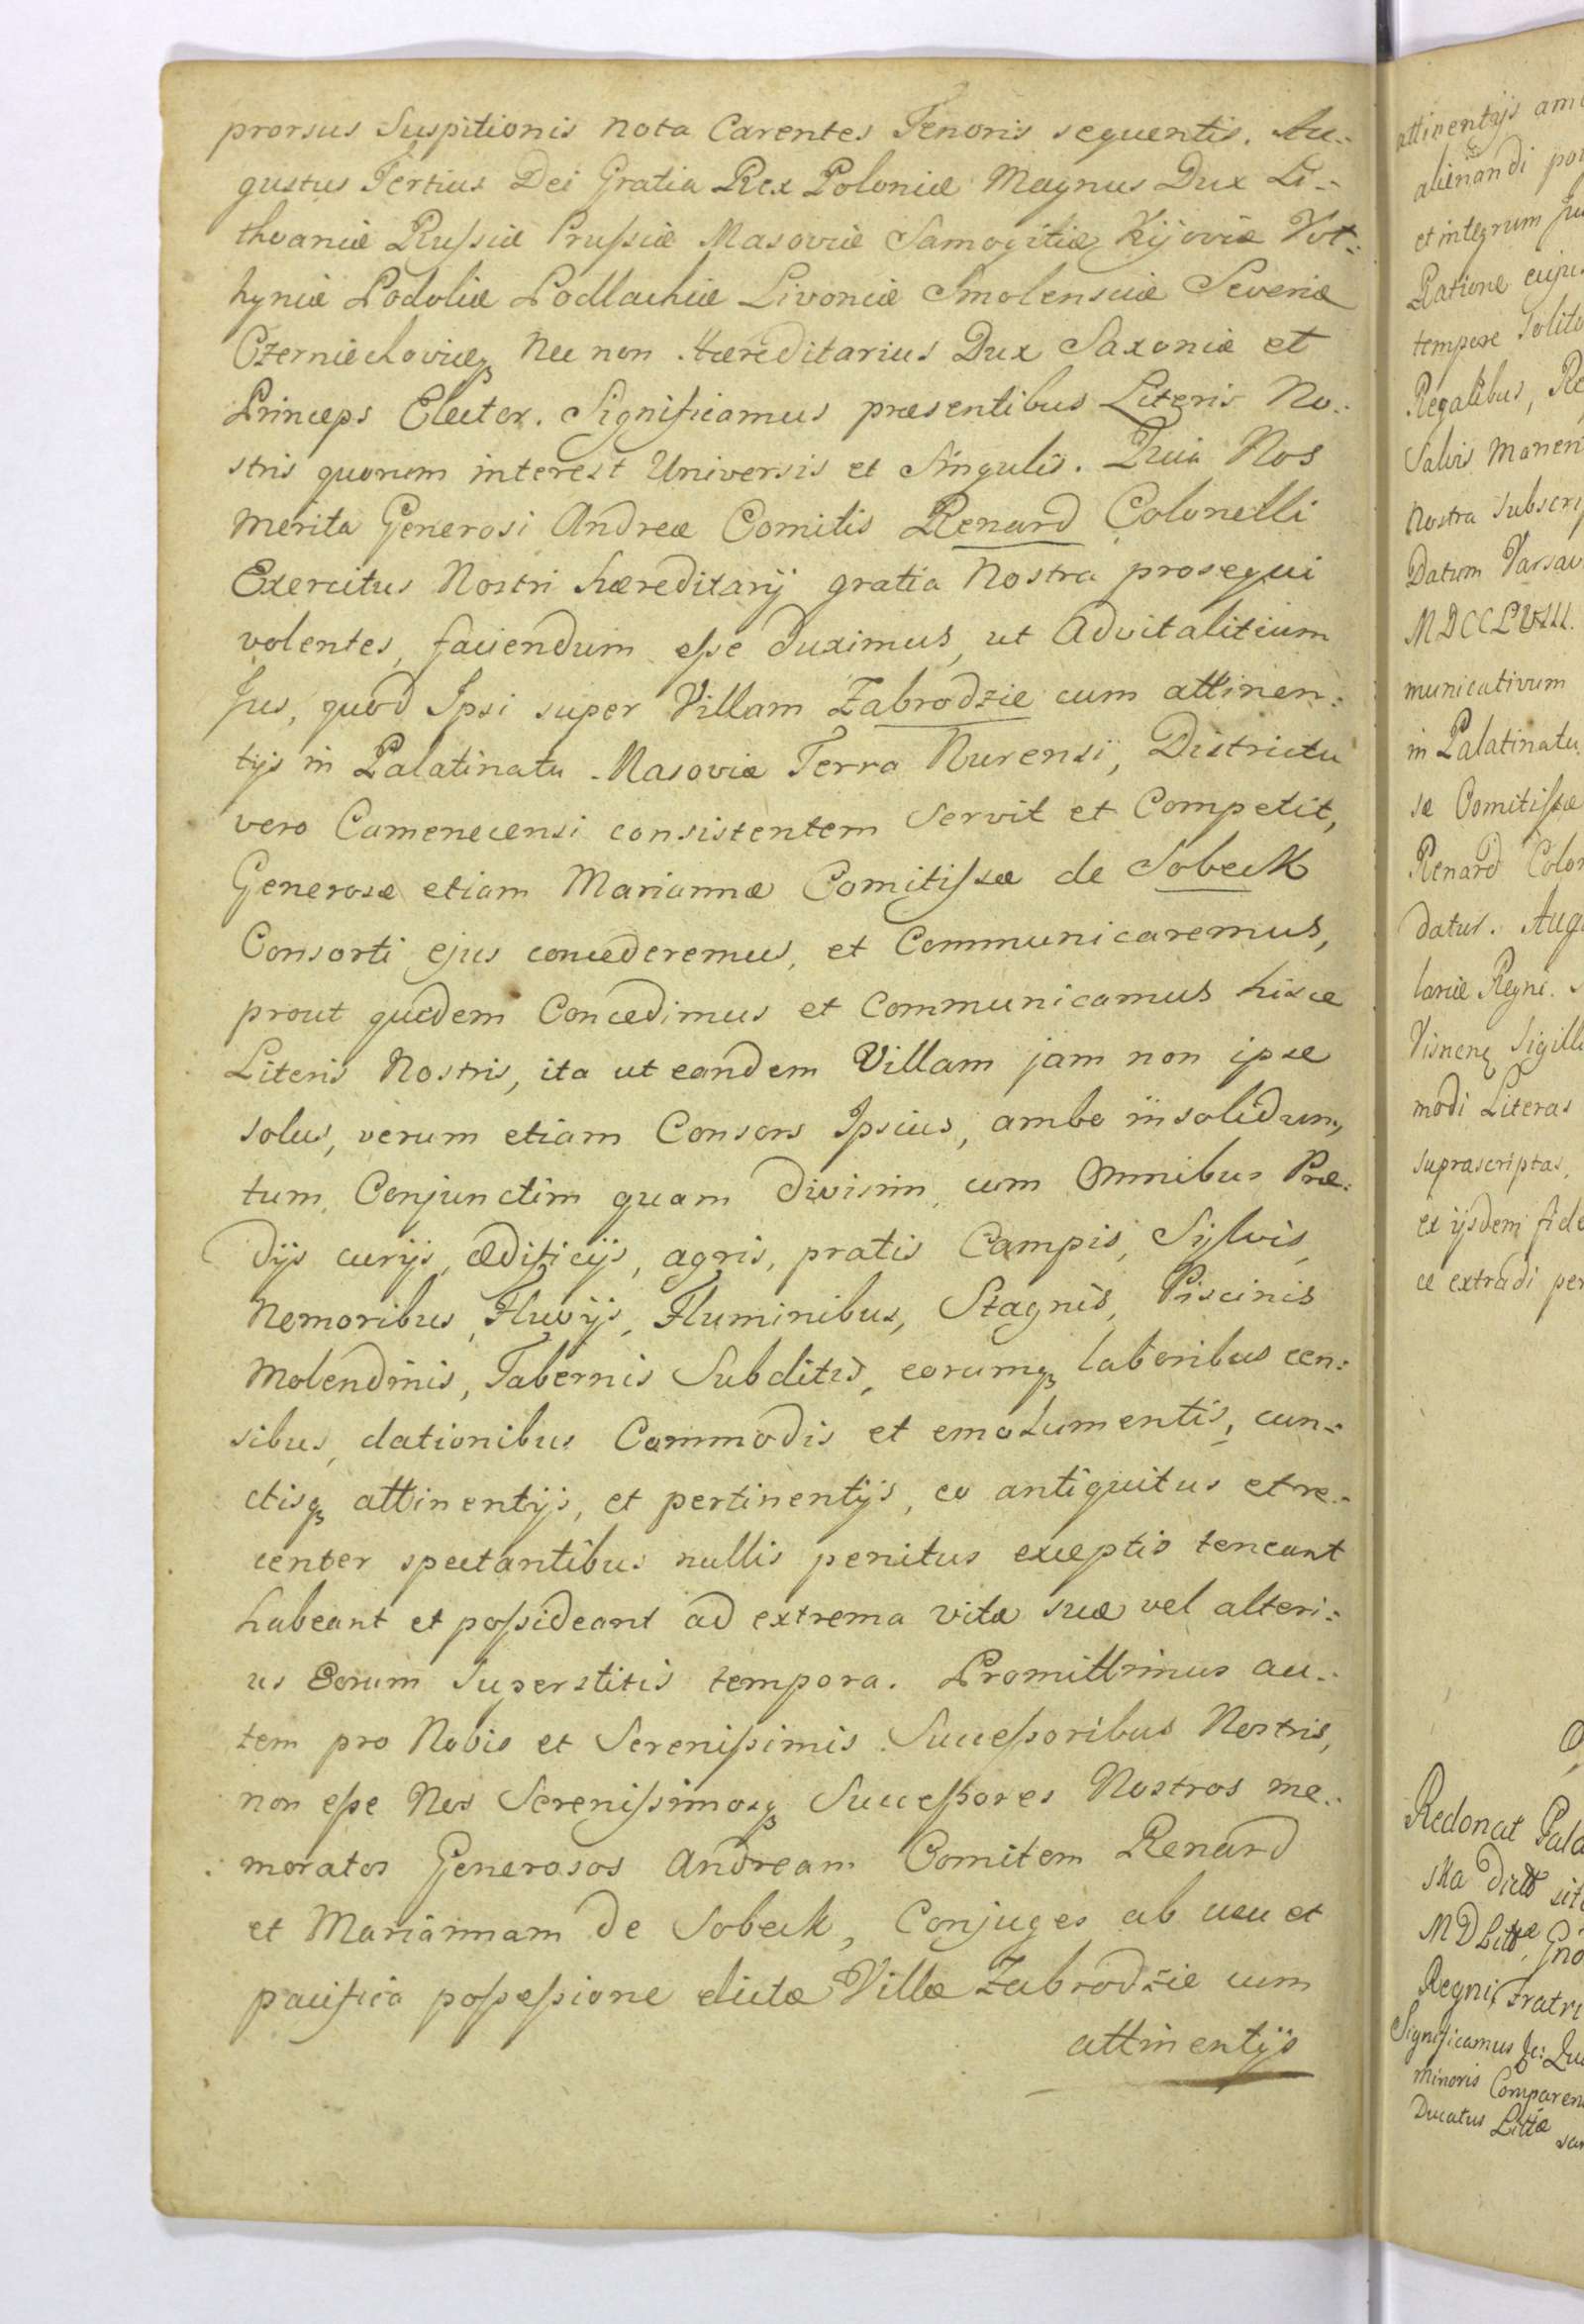 prorsus Suspitionis nota Carentes Tenoris sequentis. Au-
gustus Tertius Dei Gratia Rex Poloniæ Magnus Dux Li-
thvaniæ Rußiæ Prußiæ Masoviæ Samogitiæ Kijoviæ Vol-
hyniæ Podoliæ Podlachiæ Livoniæ Smolensciæ Severiæ
Czerniechoviæq3 Nec non Hæreditarius Dux Saxoniæ et
Princeps Elector. Significamus præsentibus Literis No-
stris quorum interest Universis et Singulis. Quia Nos
merita Generosi Andreæ Comitis Renard Colonelli
Exercitus Nostri hæreditarij gratia Nostra prosequi
volentes, faciendum eße duximus, ut Advitalitium
Jus, quod Ipsi super Villam Zabrodzie cum attinen-
tijs in Palatinatu Masoviæ Terra Nurensi, Districtu
vero Camenecensi consistentem Servit et Competit,
Generosæ etiam Mariannæ Comitißæ de Sobeck
Consorti ejus concederemus, et Communicaremus,
prout quidem Concedimus et Communicamus hisce
Literis Nostris, ita ut eandem Villam jam non ipse
solus, verum etiam Consors Ipsius, ambo in solidum,
tum Conjunctim quam divisim, cum Omnibus Præ-
dijs curijs, ædificijs, agris, pratis Campis, Sylvis,
Nemoribus, Fluvijs, Fluminibus, Stagnis, Piscinis
Molendinis, Tabernis Subditis, eorumq3 laboribus cen-
sibus, dationibus Commodis et emolumentis, cun-
ctisq3 attinentijs, et pertinentijs, eo antiquitus et re-
center spectantibus nullis penitus exceptis teneant
habeant et poßideant ad extrema vitæ suæ vel alteri-
us Eorum Superstitis tempora. Promittimus au-
tem pro Nobis et Serenißimis Succeßoribus Nostris,
non eße Nos Serenißimosq3 Succeßores Nostros me-
moratos Generosos Andream Comitem Renard
et Mariannam de Sobeck, Conjuges ab usu et
pacifica poßeßione dictæ Villæ Zabrodzie cum
attinentijs
attinentijs
alienandi
et integrum
Ratione
tempore
Regalibus,
Salvis
Nostra
Datum
municativum
in Palatinatu
sæ Comitißæ
Renard
datus.
lariæ Regni.
modi Literas
suprascriptas,
ex ijsdem
ce extradi
Redonat
Regni
Significamus
minoris
Ducatus